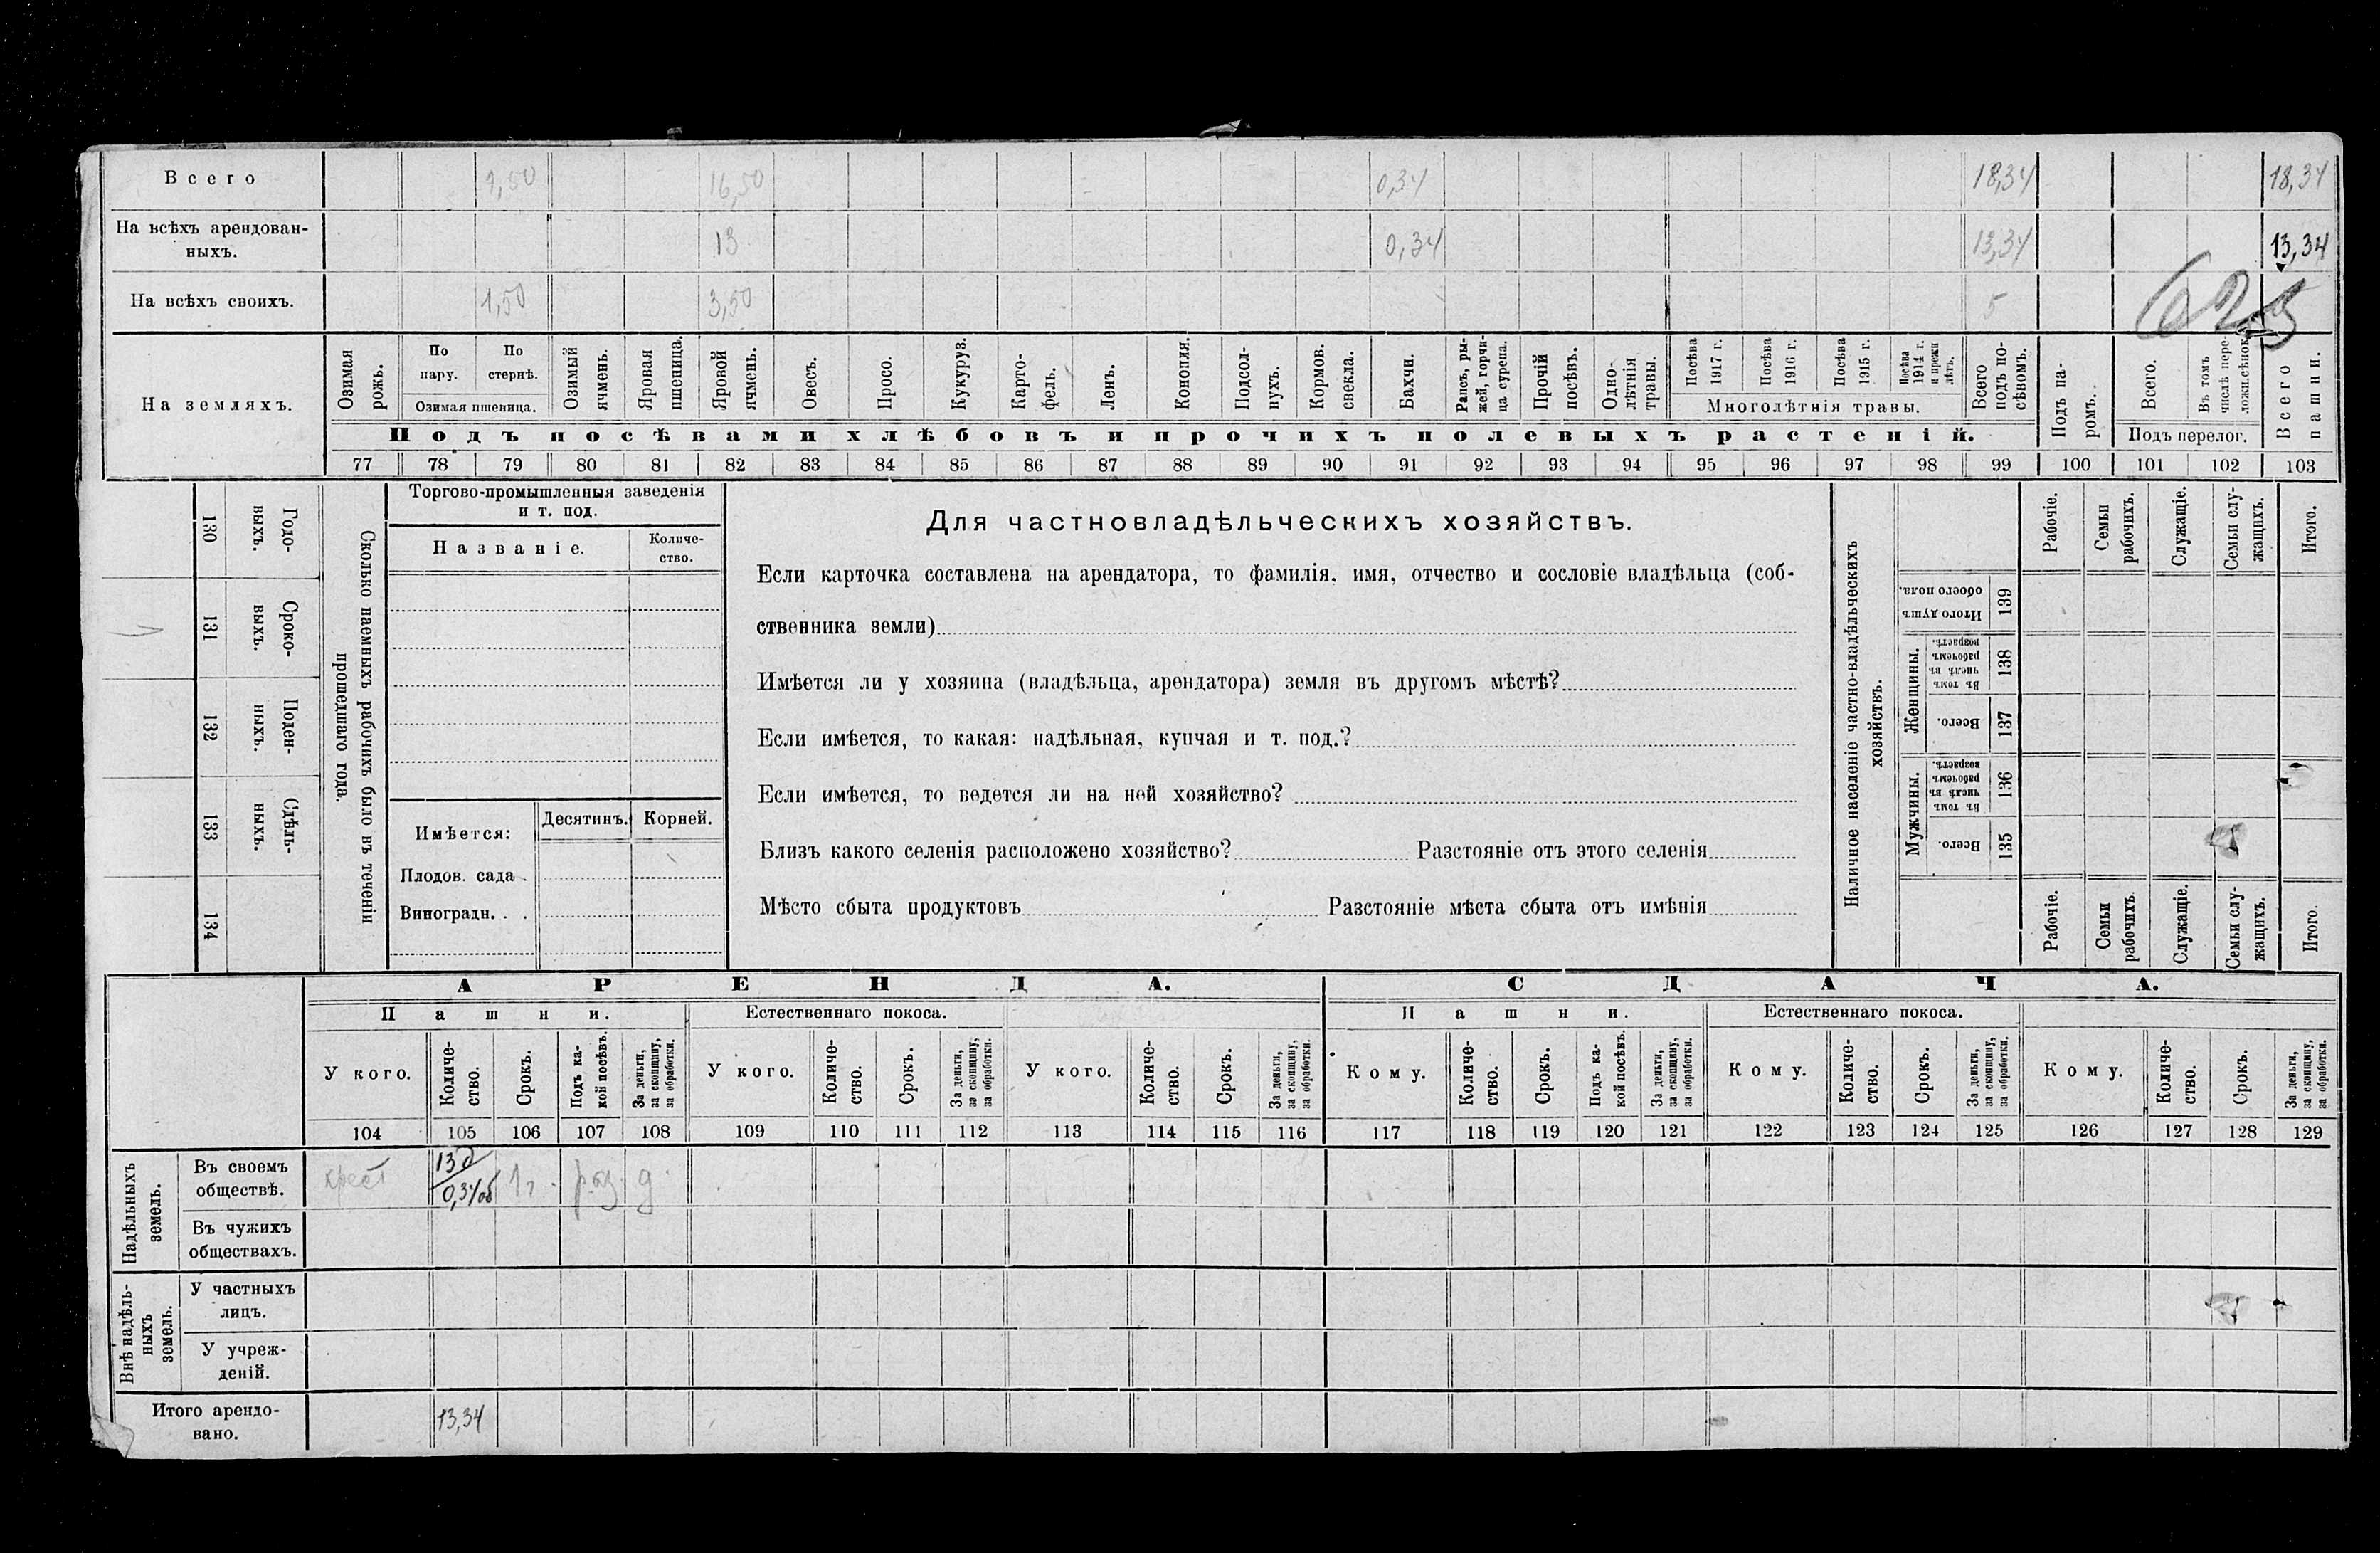 Всего 1,50 16,50 0,34 18,34 18,34
На всѣхъ арендован-
ныхъ. 13 0,34 13,34 13,34
На всѣхъ своихъ. 1,50 3,50 5
На земляхъ.
Озимая рожь.
По пару.
По стернѣ.
Озимая пшеница.
Озимый ячмень.
Яровая пшеница.
Яровой ячмень.
Овесъ.
Просо.
Кукуруз.
Карто-
фель.
Ленъ.
Конопля.
Подсол-
нухъ.
Кормов. свекла.
Бахчи.
Рапсъ, ры-
жей, горчи-
ца сурепа.
Прочій посѣвъ.
Одно-
лѣтнія травы.
Посѣва 1917 г.
Посѣва 1916 г.
Посѣва 1915 г.
Посѣва 1914 г. и прежн лѣтъ.
Многолѣтнія травы.
Всего подъ по-
сѣвомъ.
Подъ па-
ромъ.
Всего.
Въ томъ числѣ пере-
ложн.сѣнок.
Подъ перелог.
Всего пашни.
Подъ посѣвами хлѣбовъ и прочихъ полевыхъ растеній.
77 78 79 80 81 82 83 84 85 86 87 88 89 90 91 92 93 94 95 96 97 98 99 100 101 102 103
130 Годо-
выхъ.
131 Сроко-
выхъ.
132 Поден-
ныхъ.
133 Сдѣль-
ныхъ.
134
Сколько наемныхъ рабочихъ было въ теченіи
прошедшаго года.
Торгово-промышленныя заведенія
и т. под.
Названіе.
Количе-
ство.
Имѣется:
Десятинъ. Корней.
Плодов. сада .
Виноградн. . .
Для частновладѣльческихъ хозяйствъ.
Если карточка составлена на арендатора, то фамилія, имя, отчество и сословіе владѣльца (соб-
ственника земли)
Имѣется ли у хозяина (владѣльца, арендатора) земля въ другомъ мѣстѣ?
Если имѣется, то какая: надѣльная, купчая и т. под.?
Если имѣется, то ведется ли на ней хозяйство?
Близъ какого селенія расположено хозяйство? Разстояніе отъ этого селенія
Мѣсто сбыта продуктовъ Разстояніе мѣста сбыта отъ имѣнія
Наличное населеніе частно-владѣльческихъ
хозяйствъ.
Рабочіе.
Семьи рабочихъ.
Служащіе.
Семьи слу-
жащихъ.
Итого.
Итого душъ обоего пола. 139
Женщины.
Въ томъ числѣ въ рабочемъ возрастѣ. 138
Всего. 137
Мужчины.
Въ томъ числѣ въ рабочемъ возрастѣ. 136
Всего. 135
Рабочіе.
Семьи рабочихъ.
Служащіе.
Семьи слу-
жащихъ.
Итого.
АРЕНДА. СДАЧА.
Пашни. Естественнаго покоса. Пашни. Естественнаго покоса.
У кого.
Количе-
ство.
Срокъ.
Подъ ка-
кой посѣвъ.
За деньги,
за скопщину,
за обработки.
У кого.
Количе-
ство.
Срокъ.
За деньги,
за скопщину,
за обработки.
У кого.
Количе-
ство.
Срокъ.
За деньги,
за скопщину,
за обработки.
Кому.
Количе-
ство.
Срокъ.
Подъ ка-
кой посѣвъ.
За деньги,
за скопщину,
за обработки.
Кому.
Количе-
ство.
Срокъ.
За деньги,
за скопщину,
за обработки.
Кому.
Количе-
ство.
Срокъ.
За деньги,
за скопщину,
за обработки.
104 105 106 107 108 109 110 111 112 113 114 115 116 117 118 119 120 121 122 123 124 125 126 127 128 129
Надѣльныхъ
земель.
Въ своемъ
обществѣ.
крест 13 д 0,34 1 г. д
Въ чужихъ
обществахъ.
Внѣ надѣль-
ныхъ
земель.
У частныхъ
лицъ.
У учреж-
деній.
Итого арендо-
вано.
13,34